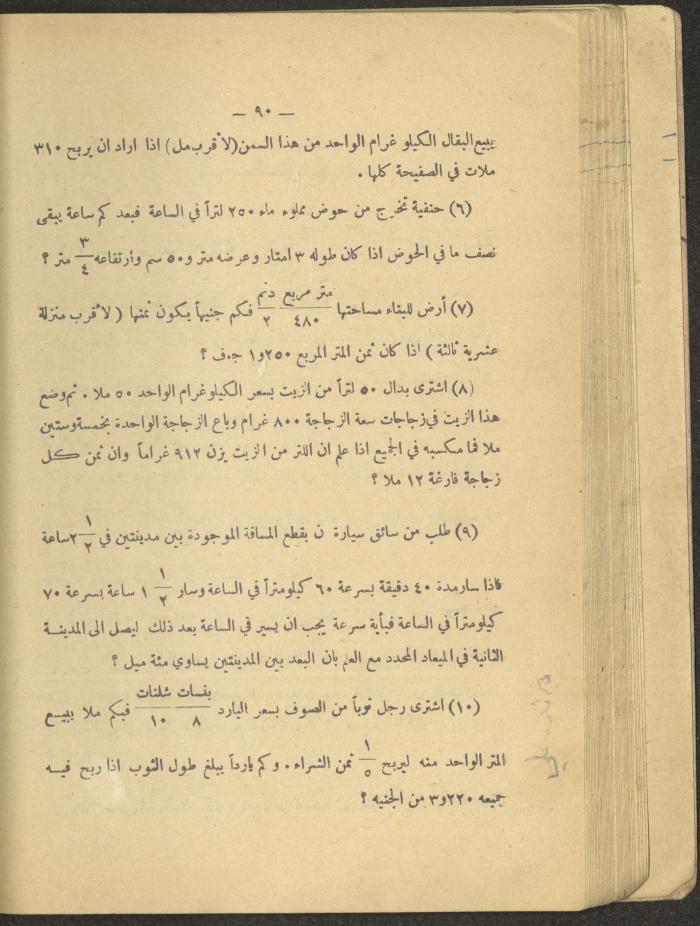 — ٩٠ —
يبيع البقال الكيلو غرام الواحد من هذا السمن (لأقرب مل) اذا اراد ان يربح ٣١٠
ملات في الصفيحة كلها .
(٦) حنفية تخرج من حوض مملوء ماء ٢٥٠ لتراً في الساعة فبعد كم ساعة يبقى
نصف ما في الحوض اذا كان طوله ٣ امتار وعرضه متر و ٥٠ سم وأرتفاعه ٣/٤ متر ؟
(٧) أرض للبناء مساحتها متر مربع ٤٨٠ دنم ٢ فكم جنيهاً يكون ثمنها ( لأقرب منزلة
عشرية ثالثة ) اذا كان ثمن المتر المربع ٢٥٠و١ ج.ف ؟
(٨) اشترى بدال ٥٠ لتراً من الزيت بسعر الكيلوغرام الواحد ٥٠ ملا . ثم وضع
هذا الزيت في زجاجات سعة الزجاجة ٨٠٠ غرام وباع الزجاجة الواحدة بخمسة وستين
ملا فما مكسبه في الجميع اذا علم ان اللتر من الزيت يزن ٩١٢ غراماً وان ثمن كل
زجاجة فارغة ١٢ ملا ؟
(٩) طلب من سائق سيارة ن يقطع المسافة الموجودة بين مدينتين في ٢ ١/٢ ساعة
فاذا سار مدة ٤٠ دقيقة بسرعة ٦٠ كيلومتراً في الساعة وسار ١ ١/٢ ساعة بسرعة ٧٠
كيلومتراً في الساعة فبأية سرعة يجب ان يسير في الساعة بعد ذلك ليصل الى المدينة
الثانية في الميعاد المحدد مع العلم بان البعد بين المدينتين يساوي مئة ميل ؟
(١٠) اشترى رجل ثوباً من الصوف بسعر اليارد بنسات ٨ شلنات ١٠ فبكم ملا يبيع
المتر الواحد منه ليربح ١/٥ ثمن الشراء . وكم يارداً يبلغ طول الثوب اذا ربح فيه
جميعه ٢٢٠و٣ من الجنيه ؟